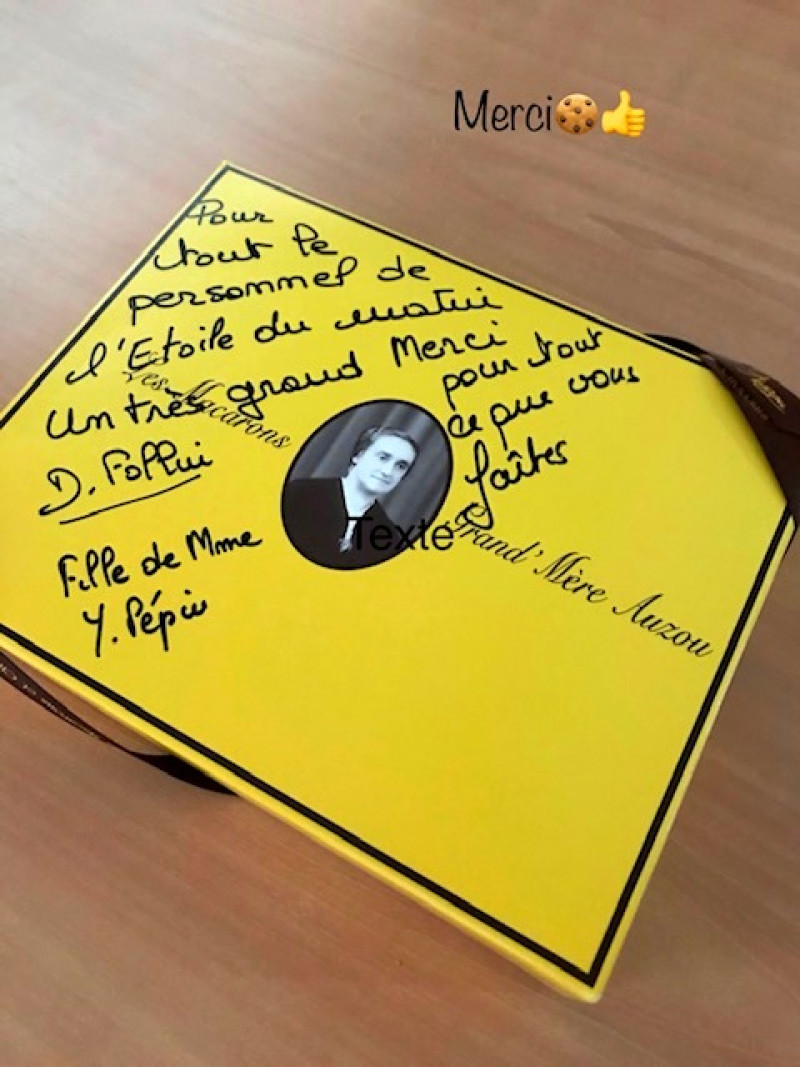 Merci🍪👍
Pour
tout le
personnel de
l'Etoile du matin
Un très grand Merci
pour tout
ce que vous
faîtes
D. Follui
Fille de Mme
Y. Pépin
Les Macarons
Texte
Grand'Mère Auzou